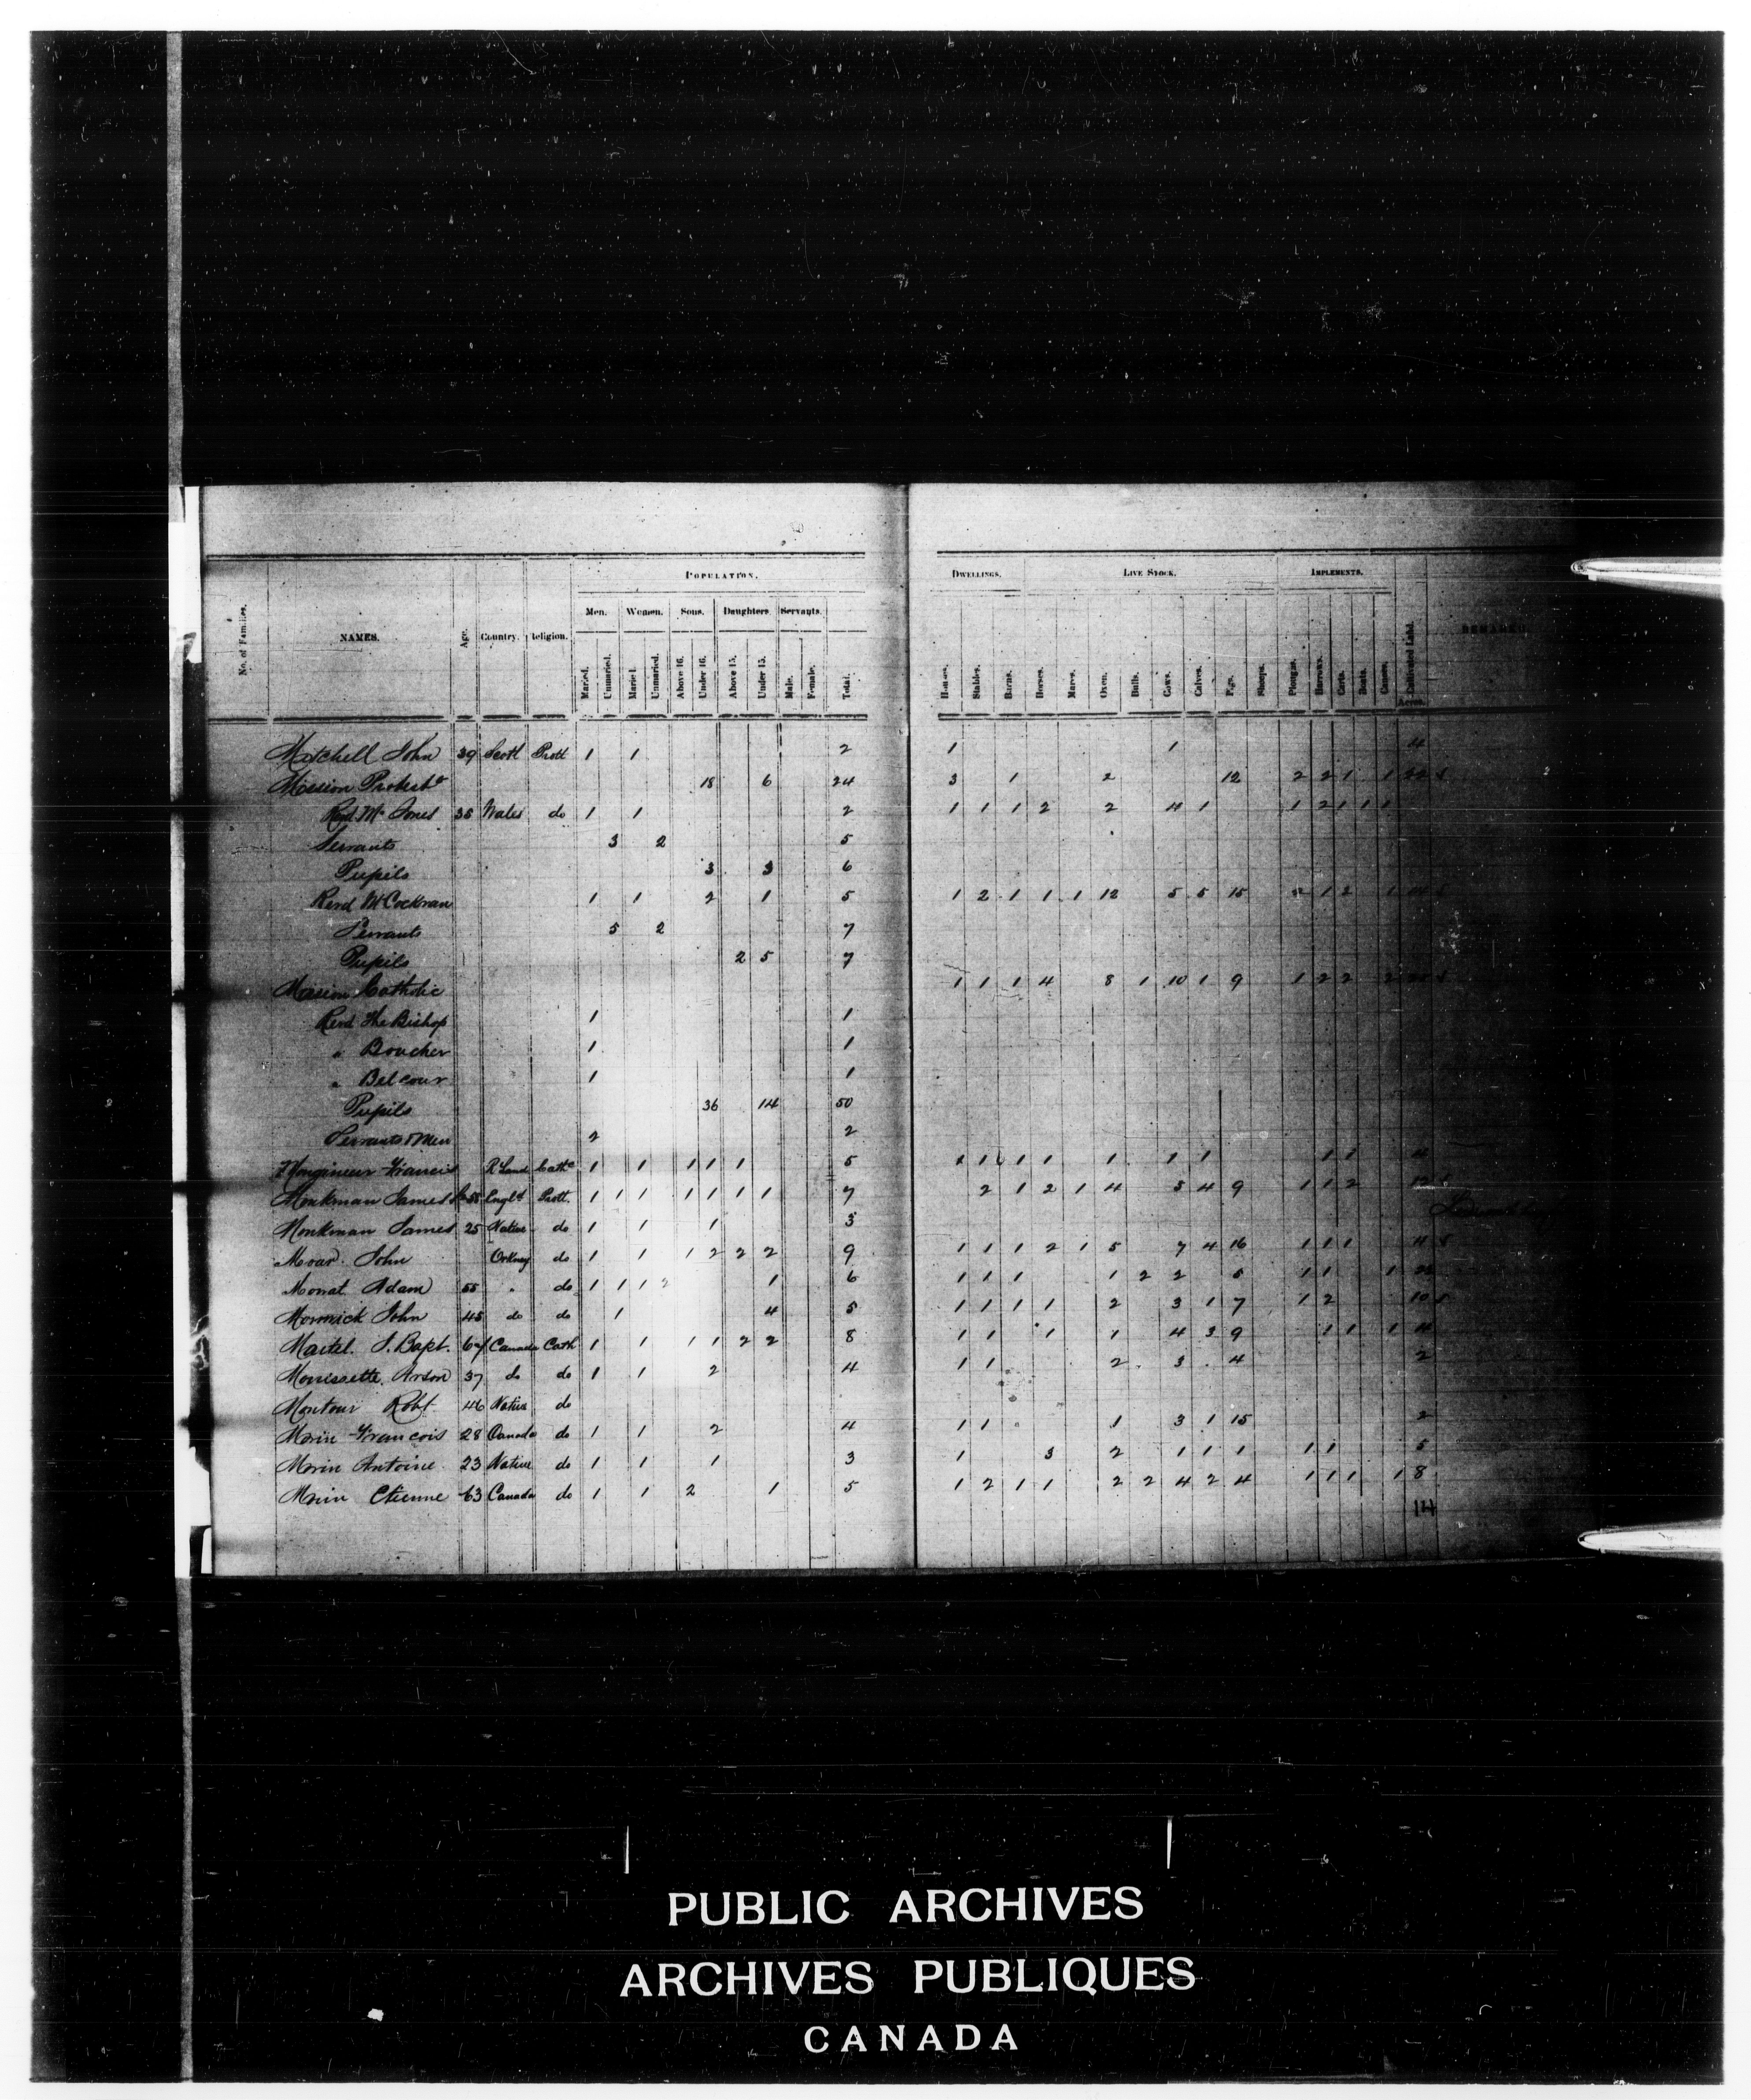 POPULATION. DWELLINGS. LIVE STOCK. IMPLEMENTS.
Men. Women. Sons. Daughters. Servants.
No. of Families. NAMES. Age. Country. Religion. Married. Unmarried. Married. Unmarried. Above 16. Under 16. Above 15. Under 15. Male. Female. Total. Houses. Stables. Barns. Horses. Mares. Oxen. Bulls. Cows. Calves. Pigs. Sheep. Ploughs. Harrows. Carts. Boats. Canoes. Cultivated Land. Acres. REMARKS.
Mitchell John 39 Scotl Prott 1 1 2 1 1 4
Mission Protest 18 6 24 3 1 2 12 2 2 1 1
Revd Mr Jones 35 Wales do 1 1 2 1 1 1 2 2 4 1 1 2 1 1
Servants 3 2 5
Pupils 3 3 6
Revd Mr Cockran 1 1 2 1 5 1 2 1 1 1 12 5 5 15 1 2 1
Servants 5 2 7
Pupils 2 5 7
Mission Catholic 1 1 1 4 8 1 10 1 9 1 2 2 2
Revd The Bishop 1 1
" Boucher 1 1
" Belcour 1 1
Pupils 36 14 50
Servants Men 2 2
Francis R Land Cathc 1 1 1 1 1 5 1 1 1 1 1 1 1 1 1 4
Monkman James 55 Engld Prott. 1 1 1 1 1 1 1 7 2 1 2 1 4 5 4 9 1 1 2
Monkman James 25 Native do 1 1 1 3
Moar John Orkney do 1 1 1 2 2 2 9 1 1 1 2 1 5 7 4 16 1 1 1
Mowat Adam 55 " do 1 1 1 2 1 6 1 1 1 1 2 2 5 1 1 1
Mormick John 45 do do 1 4 5 1 1 1 1 2 3 1 7 1 2 10
Martel J. Bapt. 67 Canada Cath 1 1 1 1 2 2 8 1 1 1 1 4 3 9 1 1 1 4
Morrissette Arson 37 do do 1 1 2 4 1 1 2 3 4 2
Montour Robt 46 Native do
Morin Francois 28 Canada do 1 1 2 4 1 1 1 3 1 15 2
Morin Antoine 23 Native do 1 1 1 3 1 3 2 1 1 1 1 1 5
Morin Etienne 63 Canada do 1 1 2 1 5 1 2 1 1 2 2 4 2 4 1 1 1 1 8
PUBLIC ARCHIVES
ARCHIVES PUBLIQUES
CANADA